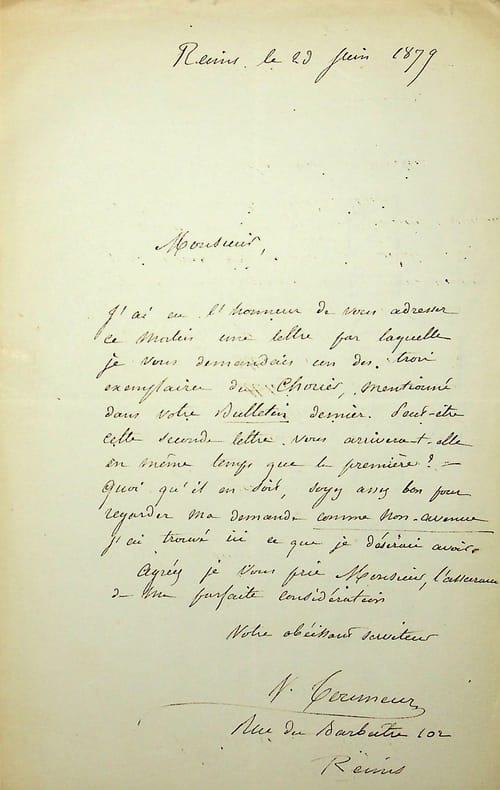 Reims, le 23 Juin 1879
Monsieur,
J'ai eu l'honneur de vous adresser
ce matin une lettre par laquelle
je vous demandais un des trois
exemplaires du Chorier, mentionné
dans votre Bulletin dernier. Peut-être
cette seconde lettre vous arrivera-t-elle
en même temps que la première ? =
Quoi qu'il en soit, soyez assez bon pour
regarder ma demande comme non-avenue
J'ai trouvé ici ce que je désirais avoir.
Agréez je vous prie Monsieur, l'assurance
de ma parfaite considération
Votre obéissant serviteur
Rue du Barbatre 102
Reims